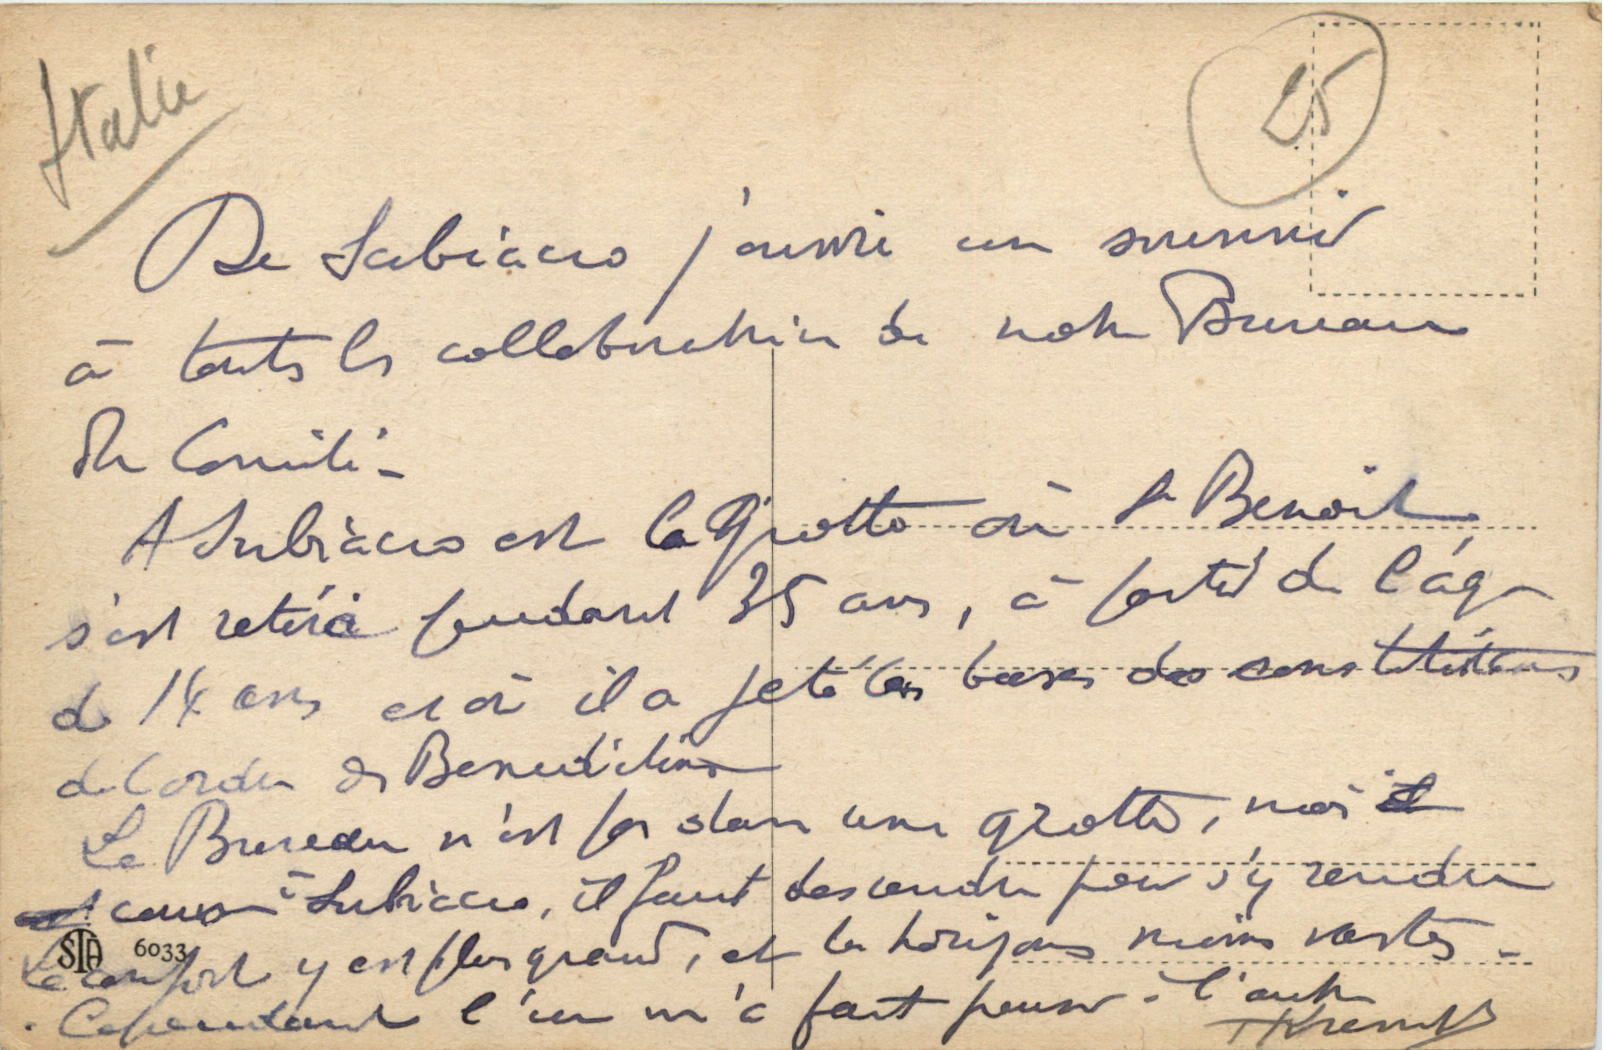 Italie
25
De Subiaco j'envoie un souvenir
à touts les collaboratrices de notre Bureau
du Comité -
A Subiaco est la Grotte où St Benoit
s'est retiré pendant 35 ans, à partir de l'âge
de 14 ans et où il a jeté les bases des constitutions
de l'ordre des Benedictins
Le Bureau n'est pas dans une grotte, mais
comme à Subiaco, il faut descendre pour s'y rendre
Le confort y est plus grand, et les horizons moins vastes -
Cependant l'un m'a fait penser à l'autre
STA 6033